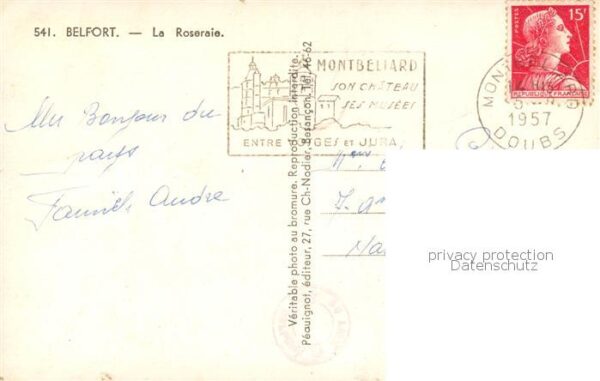 541. BELFORT. — La Roseraie.
MONTBELIARD
SON CHÂTEAU
SES MUSÉES
ENTRE VOSGES ET JURA,
POSTES
15F
REPUBLIQUE FRANÇAISE
1957
DOUBS
Un Bonjour du
pays
Famille André
Véritable photo au bromure. Reproduction interdite.
Péquignot, éditeur, 27, rue Ch-Nodier, Besançon, Tél. 46-62
privacy protection
Datenschutz